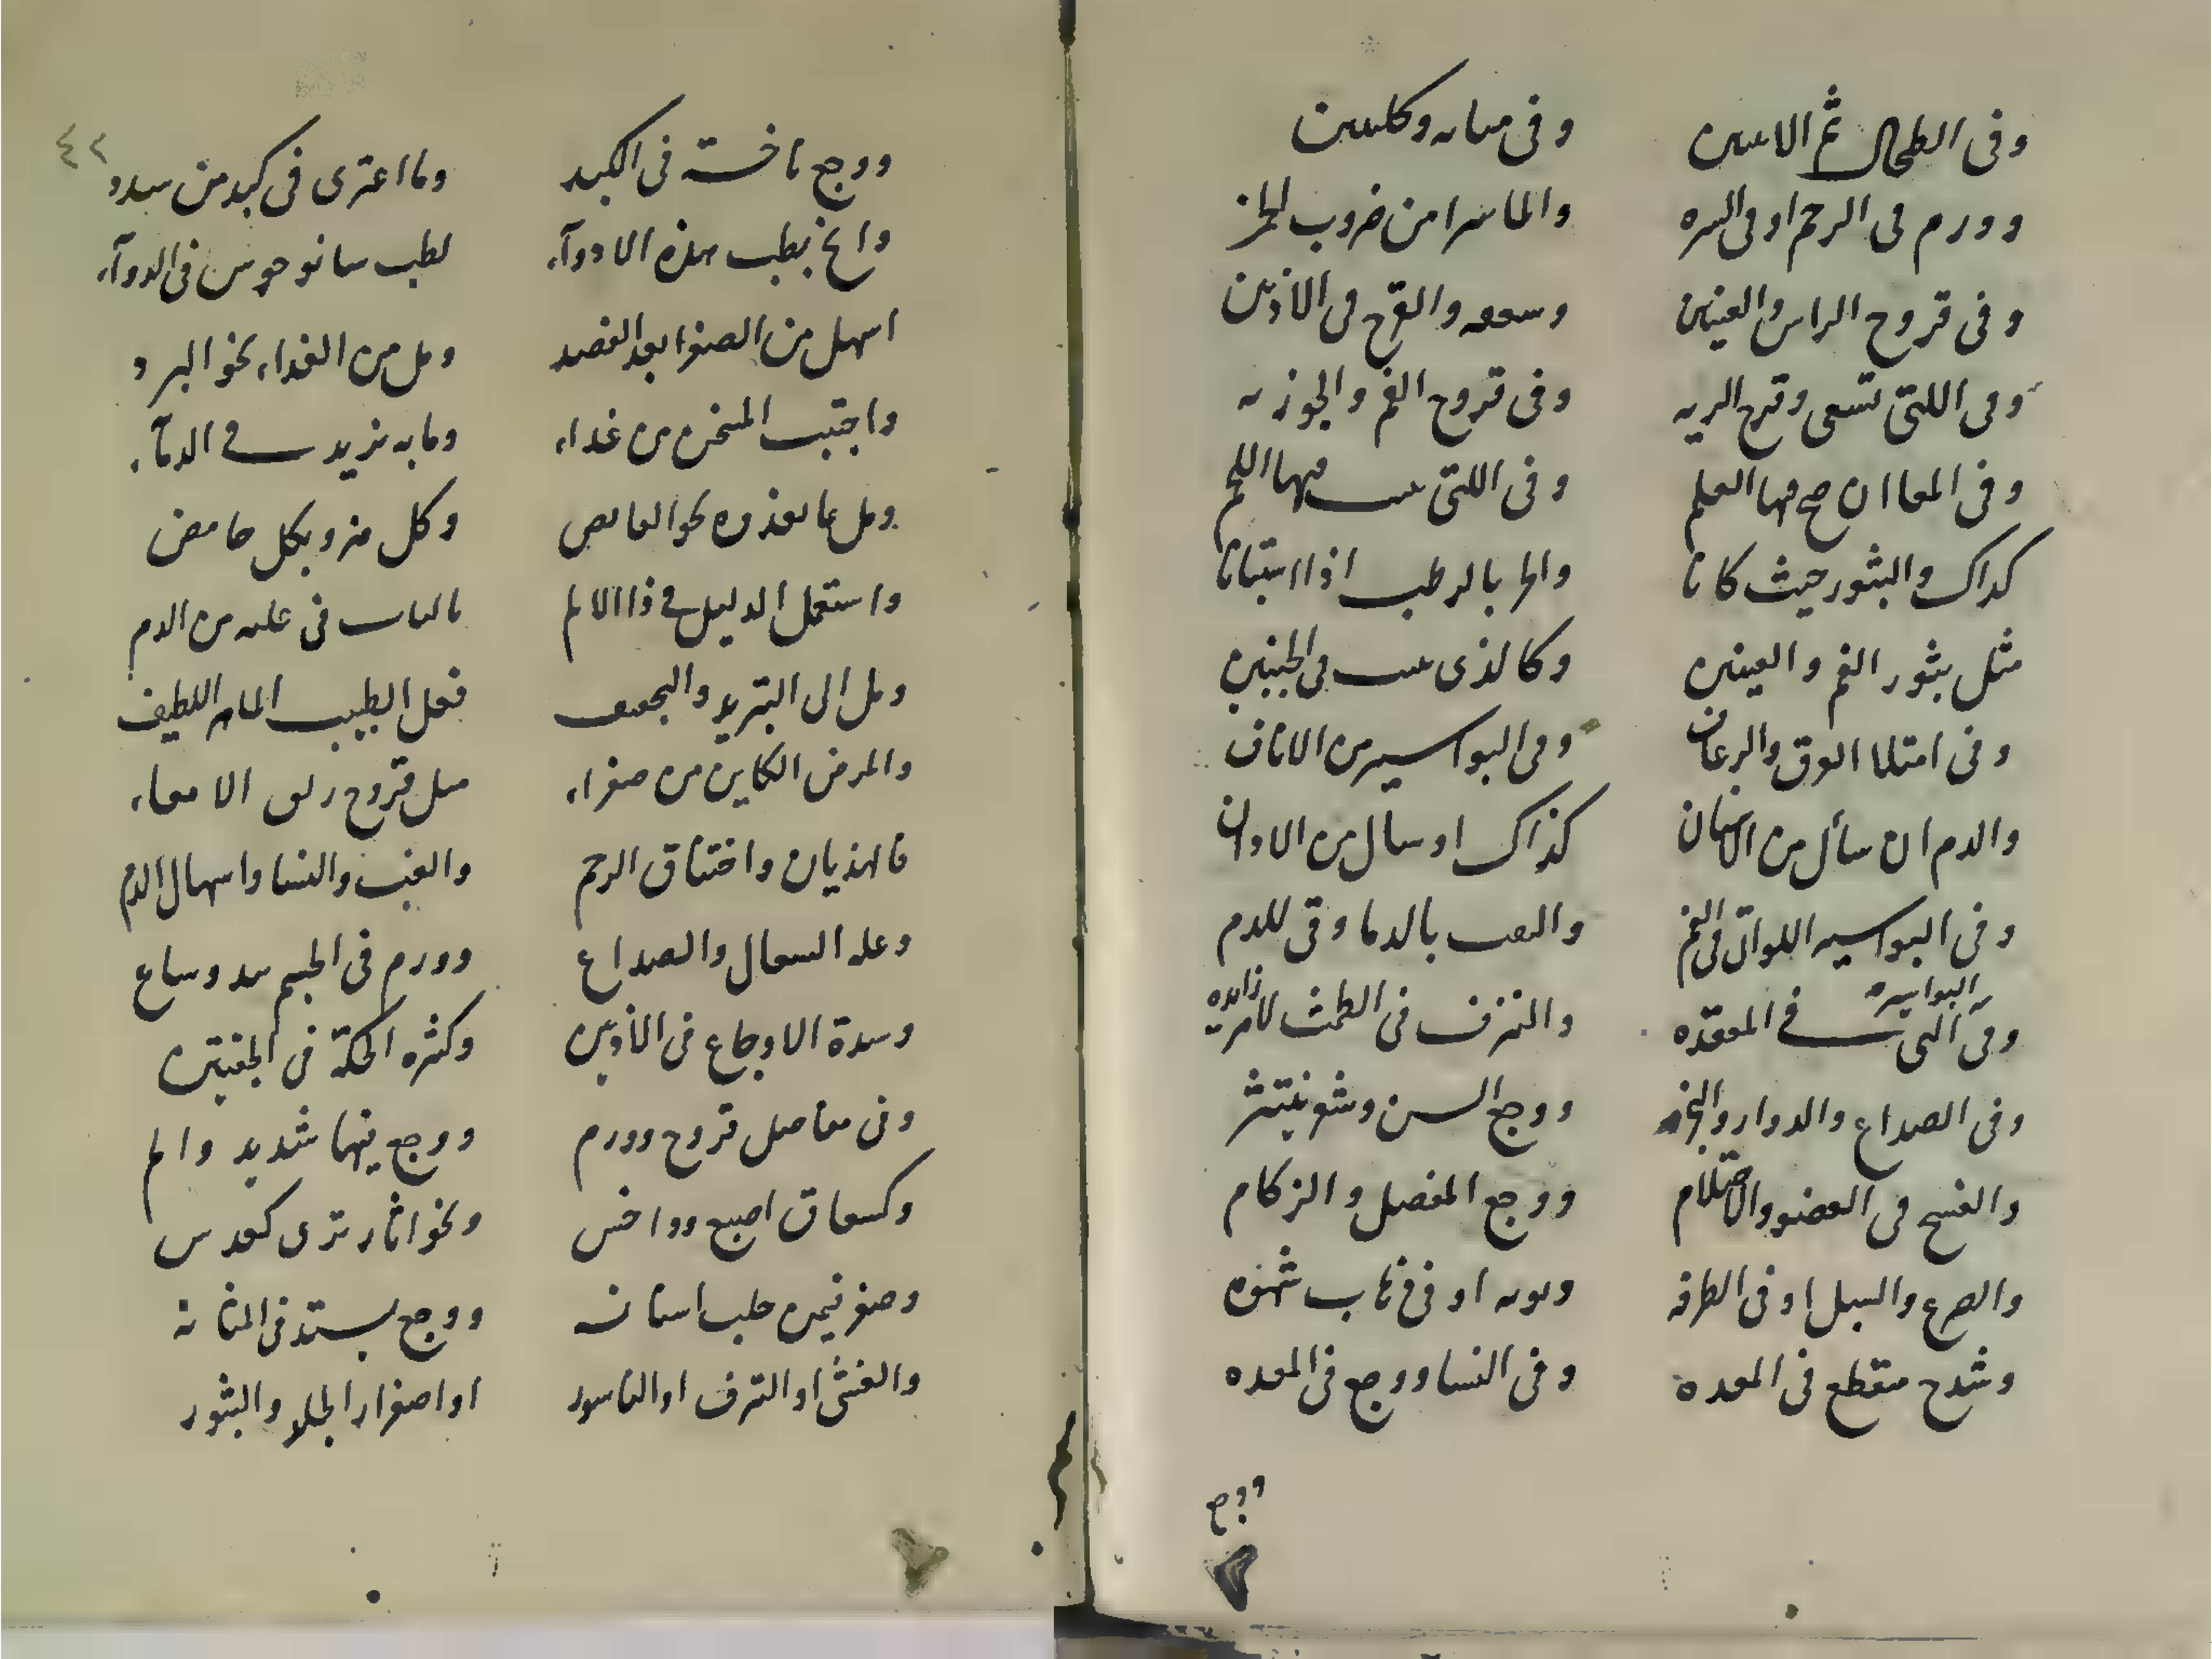 وفى الطحال ثم الانثيين وفى مثانه وكليتين
وورم فى الرحم او فى السره والماشرا من ضروب الحمر
وفى قروح الراس والعينين وسعفه والقرح فى الاذنين
وفى اللتى تسعى وقرح الريه وفى قروح الفم والجوزيه
وفى المعا ان صح فيها العلم وفى اللتى ينبت فيها اللحم
كذاك والبثور حيث كانا والجرب الرطب اذا استبانا
مثل بثور الفم والعينين وكالذى ينبت فى الجنبين
وفى امتلا العرق والرعاف وفى البواسير من الاناف
والدم ان سأل من الاسنان كذاك او سال من الاذان
وفى البواسير اللواتى فى الفم والنفث بالدما وقى للدم
البواسير زايده
وفى التى فى المعقده والنزف فى الطمث لامر
وفى الصداع والدوار والبخر ووجع السن وشعر ينتثر
والفسخ فى العضو والاحتلام ووجع المفصل والزكام
والصرع والسبل او فى الطرفه او فى ذهاب شهوه
وشدح متقطع فى المعده وفى النسا ووجع فى المعده
ووجع
٤٢
ووجع ناخسة فى الكبد وما اعترى فى كبد من سدد
وانح بطب هذه الادوآء لطب سانوخوس فى الدوآء
اسهل من الصفرا بعد الفصد ومل من الغداء نحو البرد
واجتنب المسخن من غداء وما به يزيد فى الدمآء
ومل بما تغذوه نحو القابض وكل مز وبكل حامض
واستعمل الدليل فى ذا الالم فى عله من الدم
ومل الى التبريد والتجفيف فعل الطبيب الماهر اللطيف
والمرض الكاين من صفراء مثل قروح زلق الامعاء
كالهذيان واختناق الرحم والغب والنسا واسهال الدم
وعله السعال والصداع وورم فى الجسم يبدو ساع
وشدة الاوجاع فى الاذنين وكثره الحكة فى الجفنين
وفى مفاصل قروح وورم ووجع فيها شديد والم
وكشقاق اصبع وداخس ونحو اثار ترى كعدس
وصغر فيمن حلب اسنانه ووجع يشتد فى المثانه
والغشى او النزف او الناسور او اصفرار الجلد والبثور